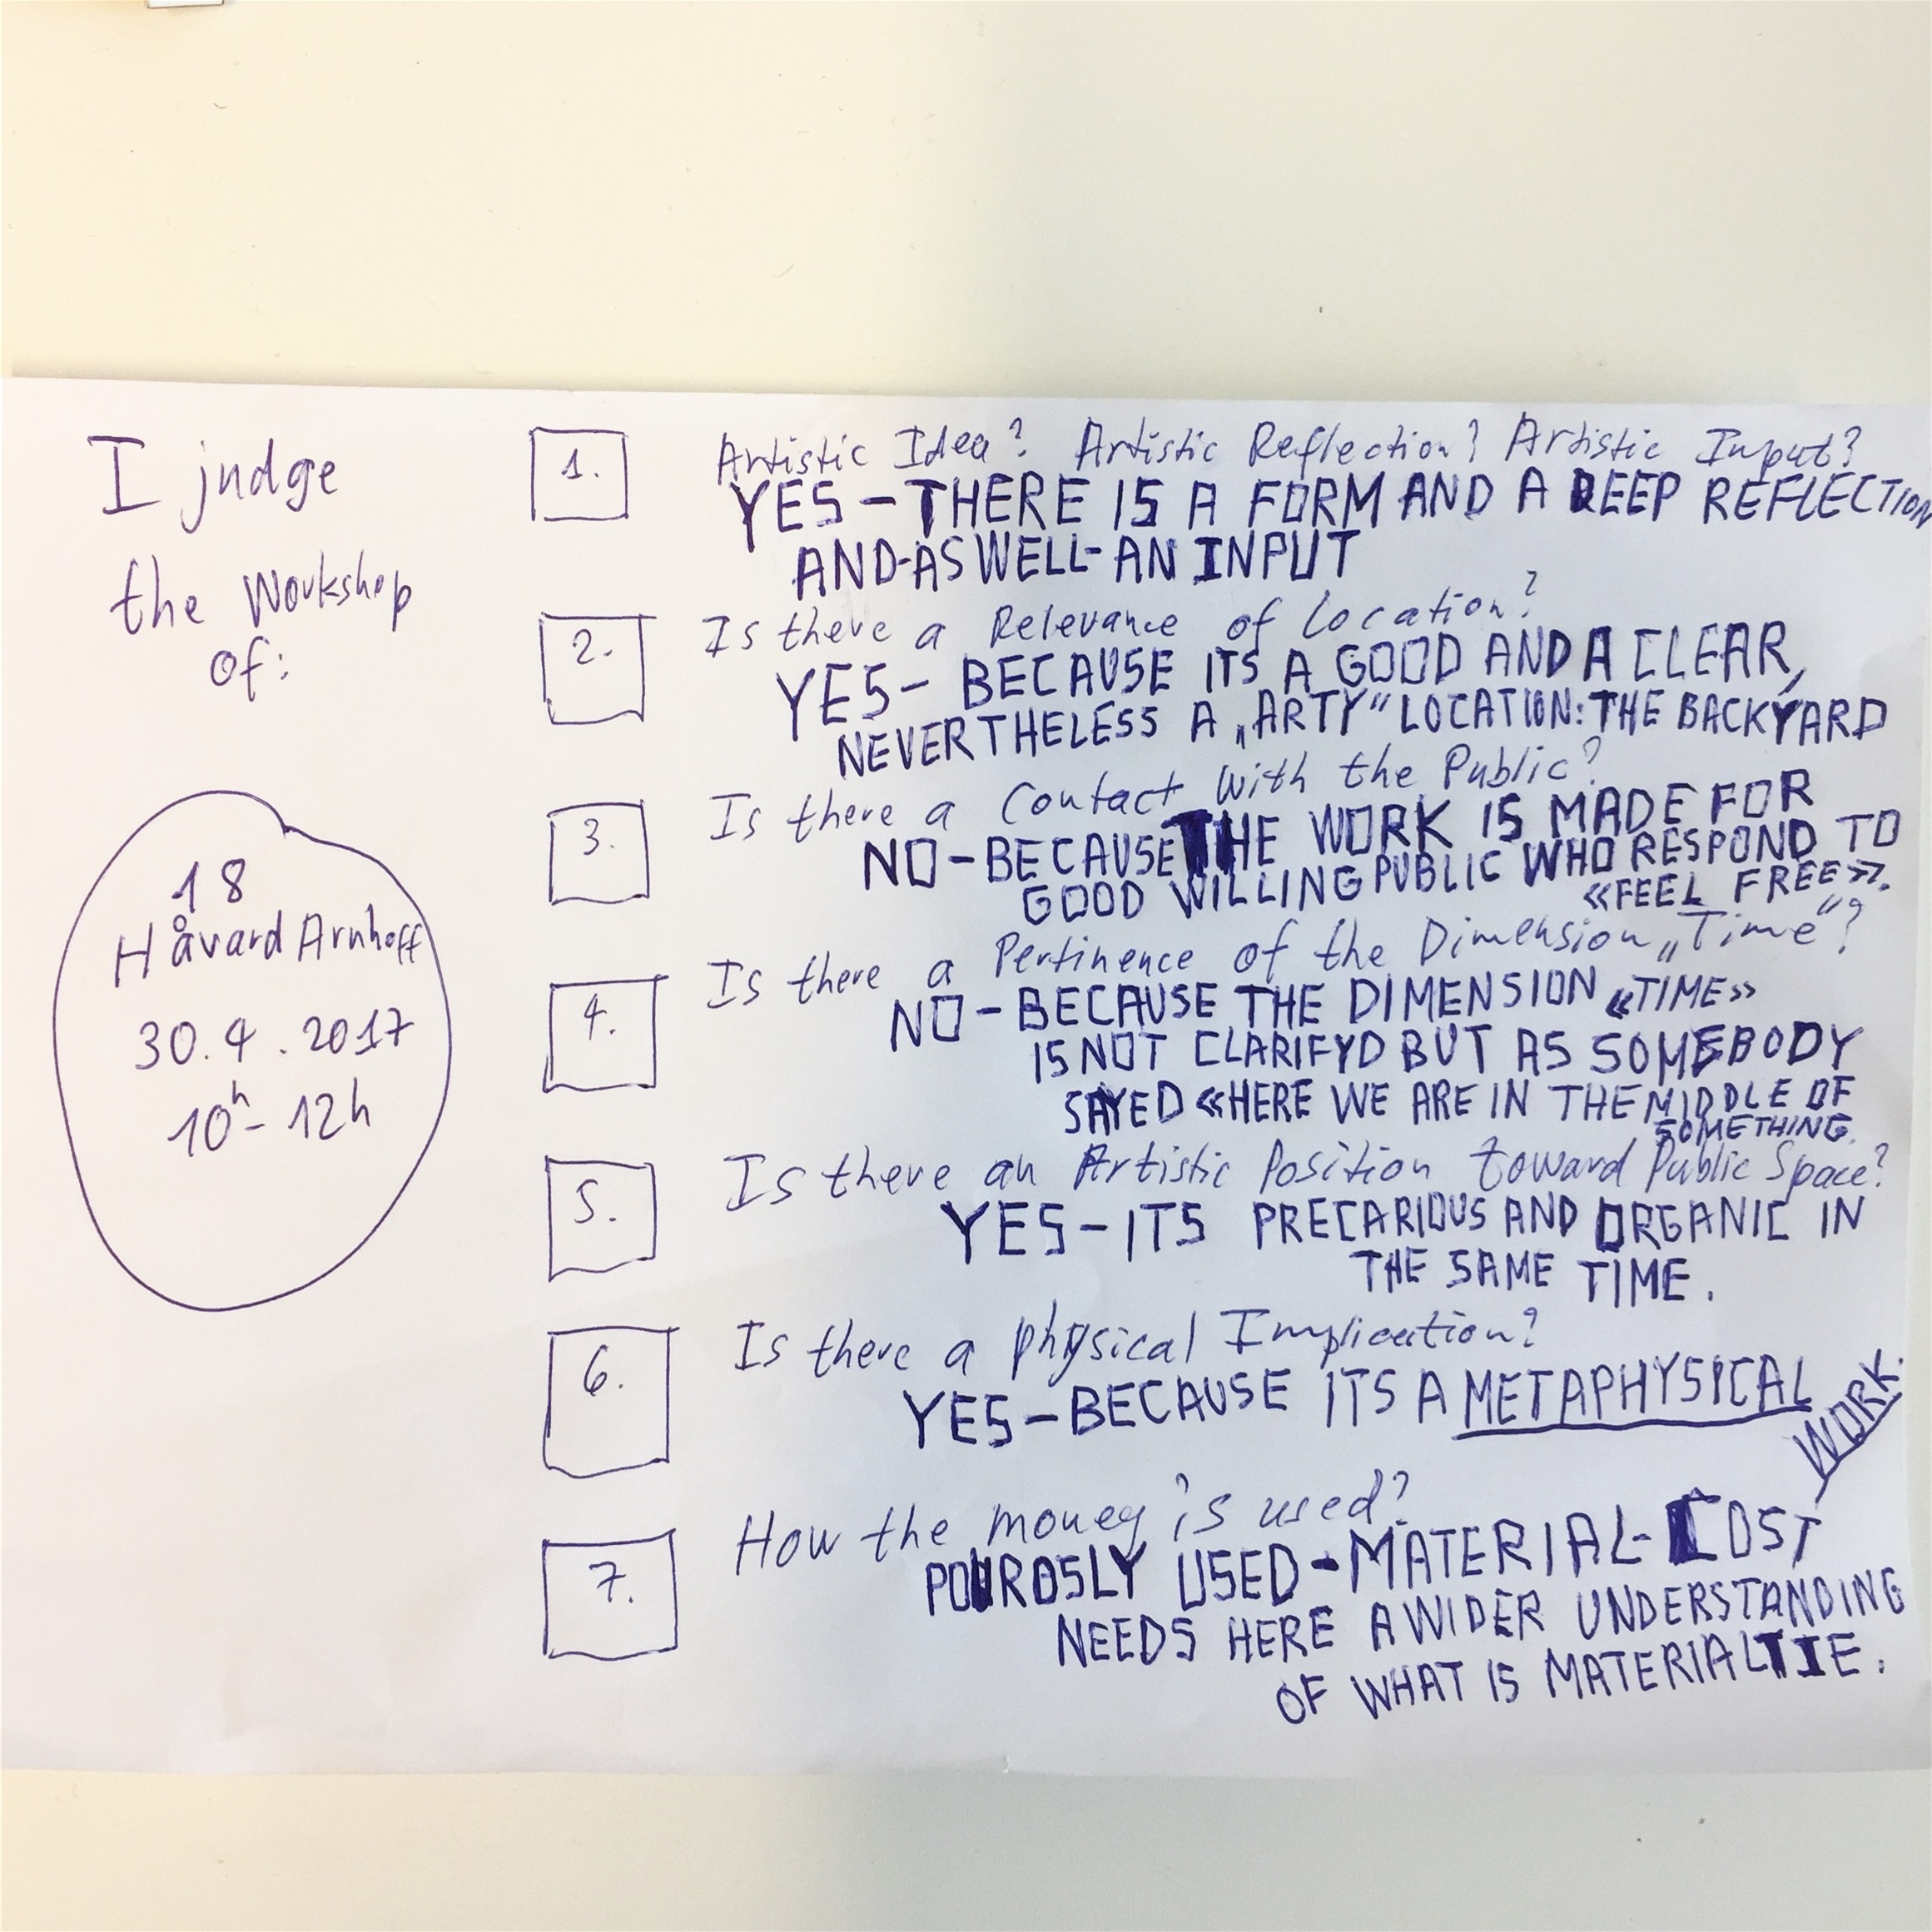 I judge
the Workshop
of:
18
Håvard Arnhoff
30.4.2017
10h - 12h
1.
Artistic Idea? Artistic Reflection? Artistic Input?
YES – THERE IS A FORM AND A DEEP REFLECTION
AND-AS WELL-AN INPUT
2.
Is there a Relevance of Location?
YES – BECAUSE ITS A GOOD AND A CLEAR,
NEVERTHELESS A „ARTY“ LOCATION: THE BACKYARD
3.
Is there a Contact with the Public?
NO – BECAUSE THE WORK IS MADE FOR
GOOD WILLING PUBLIC WHO RESPOND TO
«FEEL FREE».
4.
Is there a Pertinence of the Dimension „Time“?
NO – BECAUSE THE DIMENSION «TIME»
IS NOT CLARIFYD BUT AS SOMEBODY
SAYED «HERE WE ARE IN THE MIDDLE OF
SOMETHING.
5.
Is there an Artistic Position toward Public Space?
YES – ITS PRECARIOUS AND ORGANIC IN
THE SAME TIME.
6.
Is there a physical Implication?
YES – BECAUSE ITS A METAPHYSICAL
WORK.
7.
How the money is used?
POUROSLY USED – MATERIAL-COST
NEEDS HERE A WIDER UNDERSTANDING
OF WHAT IS MATERIALTIE.